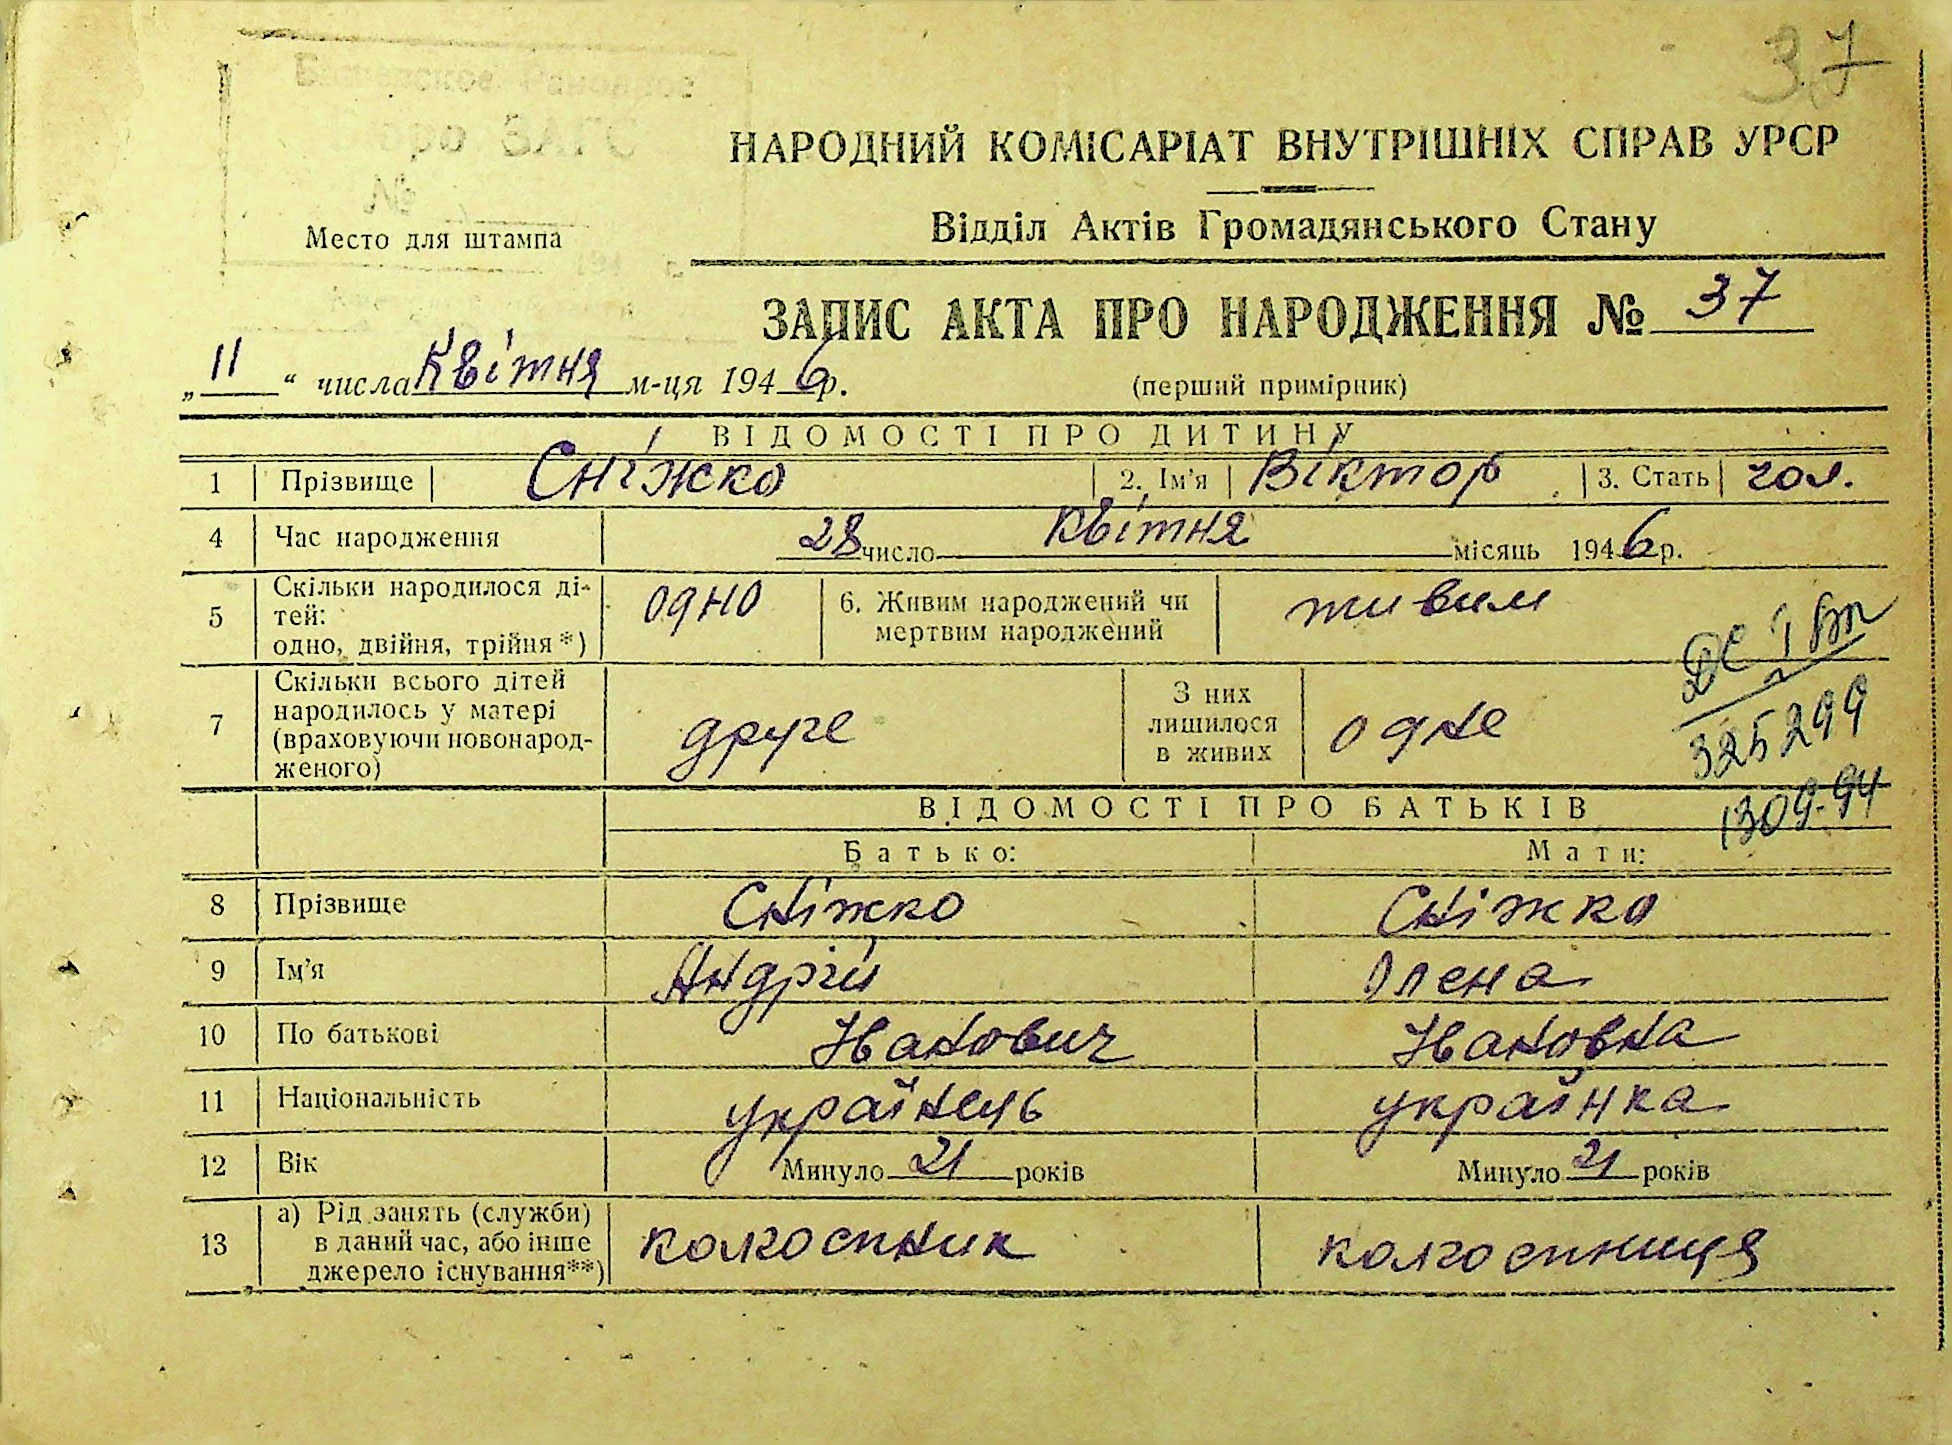 37
ЗАГС
№
НАРОДНИЙ КОМІСАРІАТ ВНУТРІШНІХ СПРАВ УРСР
Место для штампа
Відділ Актів Громадянського Стану
ЗАПИС АКТА ПРО НАРОДЖЕННЯ № 37
„11“ числа Квітня м-ця 1946 р.
(перший примірник)
ВІДОМОСТІ ПРО ДИТИНУ
1 Прізвище Сніжко 2. Ім'я Віктор 3. Стать чол.
4 Час народження 28 число квітня місяць 1946 р.
5 Скільки народилося ді-
тей:
одно, двійня, трійня *) одно 6. Живим народжений чи
мертвим народжений живим
7 Скільки всього дітей
народилось у матері
(враховуючи новонарод-
женого) друге З них
лишилося
в живих одне
325299
1309-94
ВІДОМОСТІ ПРО БАТЬКІВ
Батько: Мати:
8 Прізвище Сніжко Сніжко
9 Ім'я Андрій Олена
10 По батькові Іванович Івановна
11 Національність українець українка
12 Вік Минуло 21 років Минуло 21 років
13 а) Рід занять (служби)
в даний час, або інше
джерело існування**) колгоспник колгоспниця